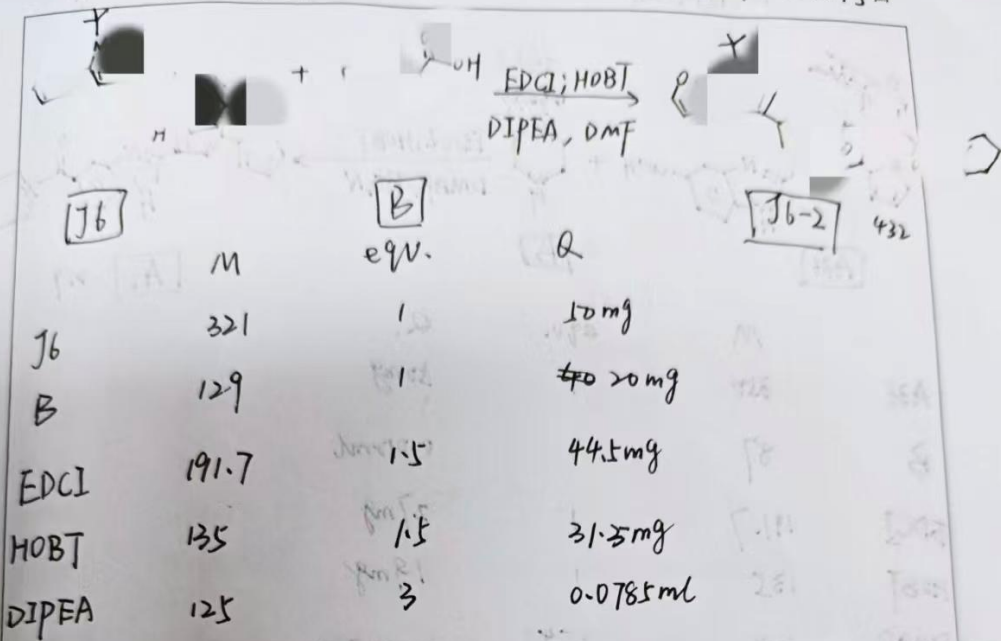 + OH EDCI; HOBT
DIPEA, DMF
H
J6 B J6-2 432
M eqv. Q
J6 321 1 50mg
B 129 1 20mg
EDCI 191.7 1.5 44.5mg
HOBT 135 1.5 31.35mg
DIPEA 125 3 0.0785ml